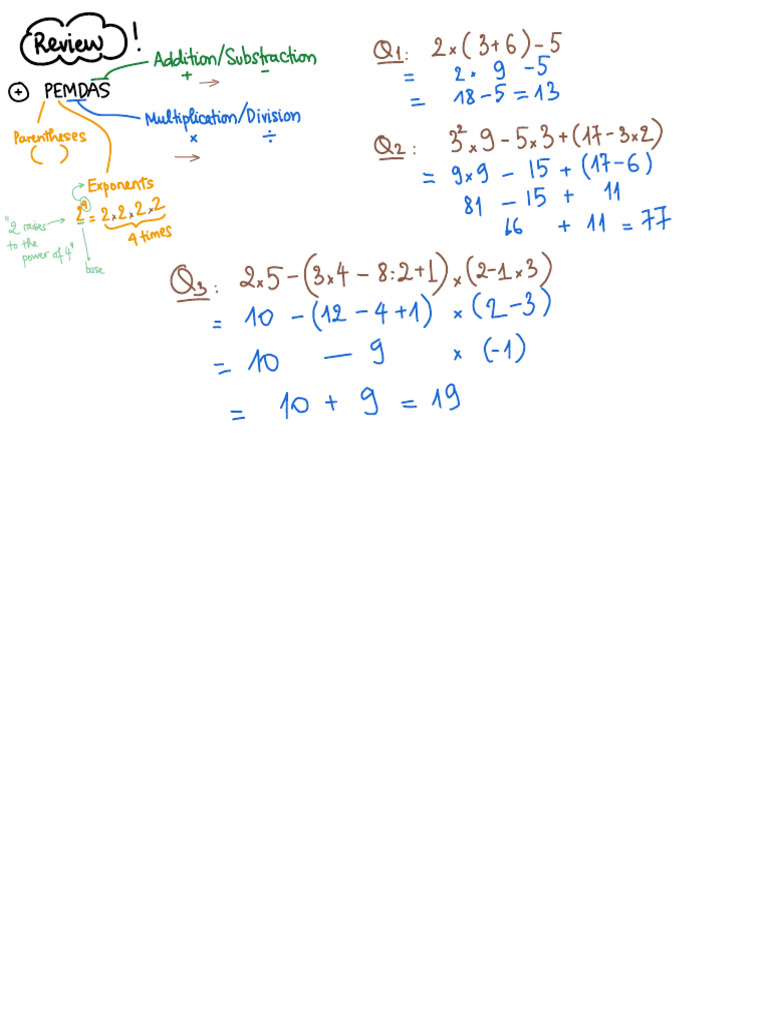 Review !
Addition/Substraction
+ → −
⊕ PEMDAS
Multiplication/Division
× → ÷
Parentheses
( )
Exponents
2⁴ = 2×2×2×2
4 times
"2 raises
to the
power of 4"
base
Q1: 2×(3+6)−5
= 2 · 9 −5
= 18−5 = 13
Q2: 3²×9−5×3+(17−3×2)
= 9×9 − 15 + (17−6)
81 − 15 + 11
66 + 11 = 77
Q3: 2×5−(3×4−8:2+1)×(2−1×3)
= 10 −(12−4+1) × (2−3)
= 10 − 9 × (-1)
= 10 + 9 = 19